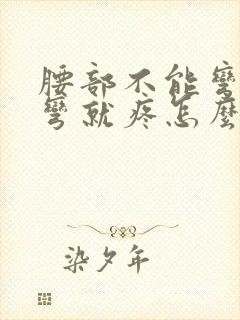 腰部不能彎
彎就疼怎麼
染夕年